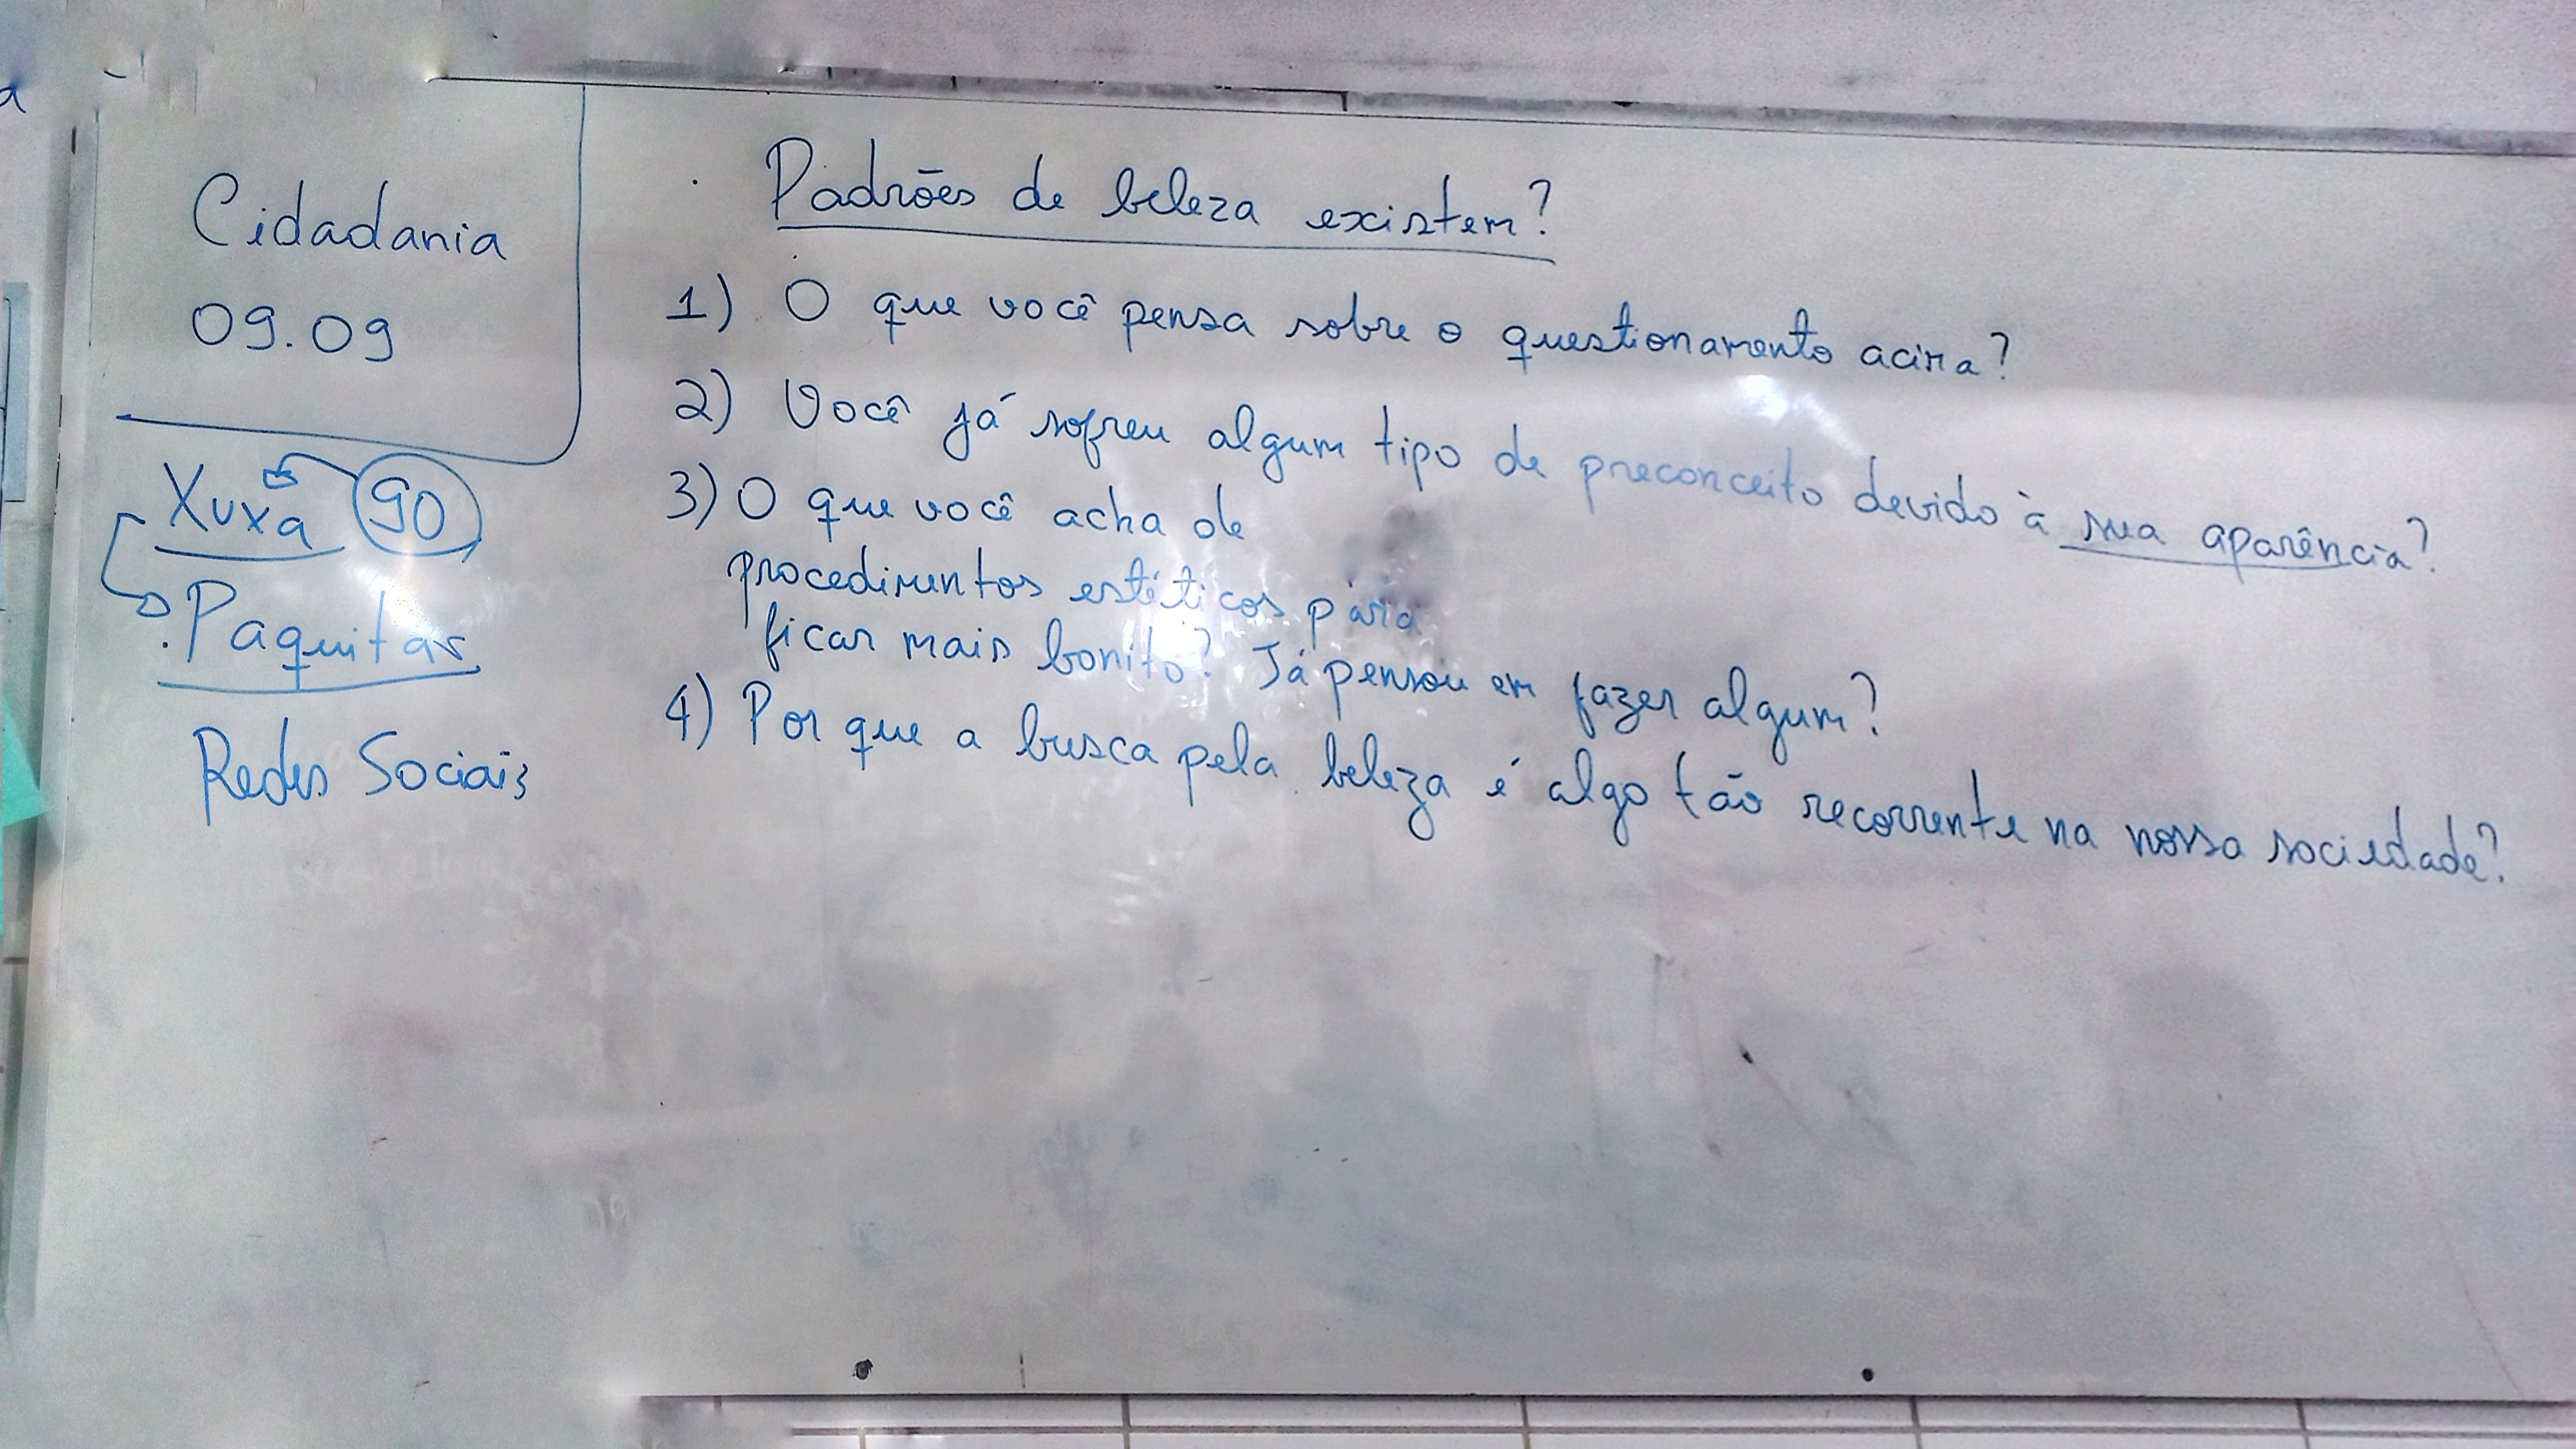 Cidadania
09.09
Xuxa 90
Paquitas
Redes Sociais
Padrões de beleza existem?
1) O que você pensa sobre o questionamento acima?
2) Você já sofreu algum tipo de preconceito devido à sua aparência?
3) O que você acha de
procedimentos estéticos para
ficar mais bonito? Já pensou em fazer algum?
4) Por que a busca pela beleza é algo tão recorrente na nossa sociedade?